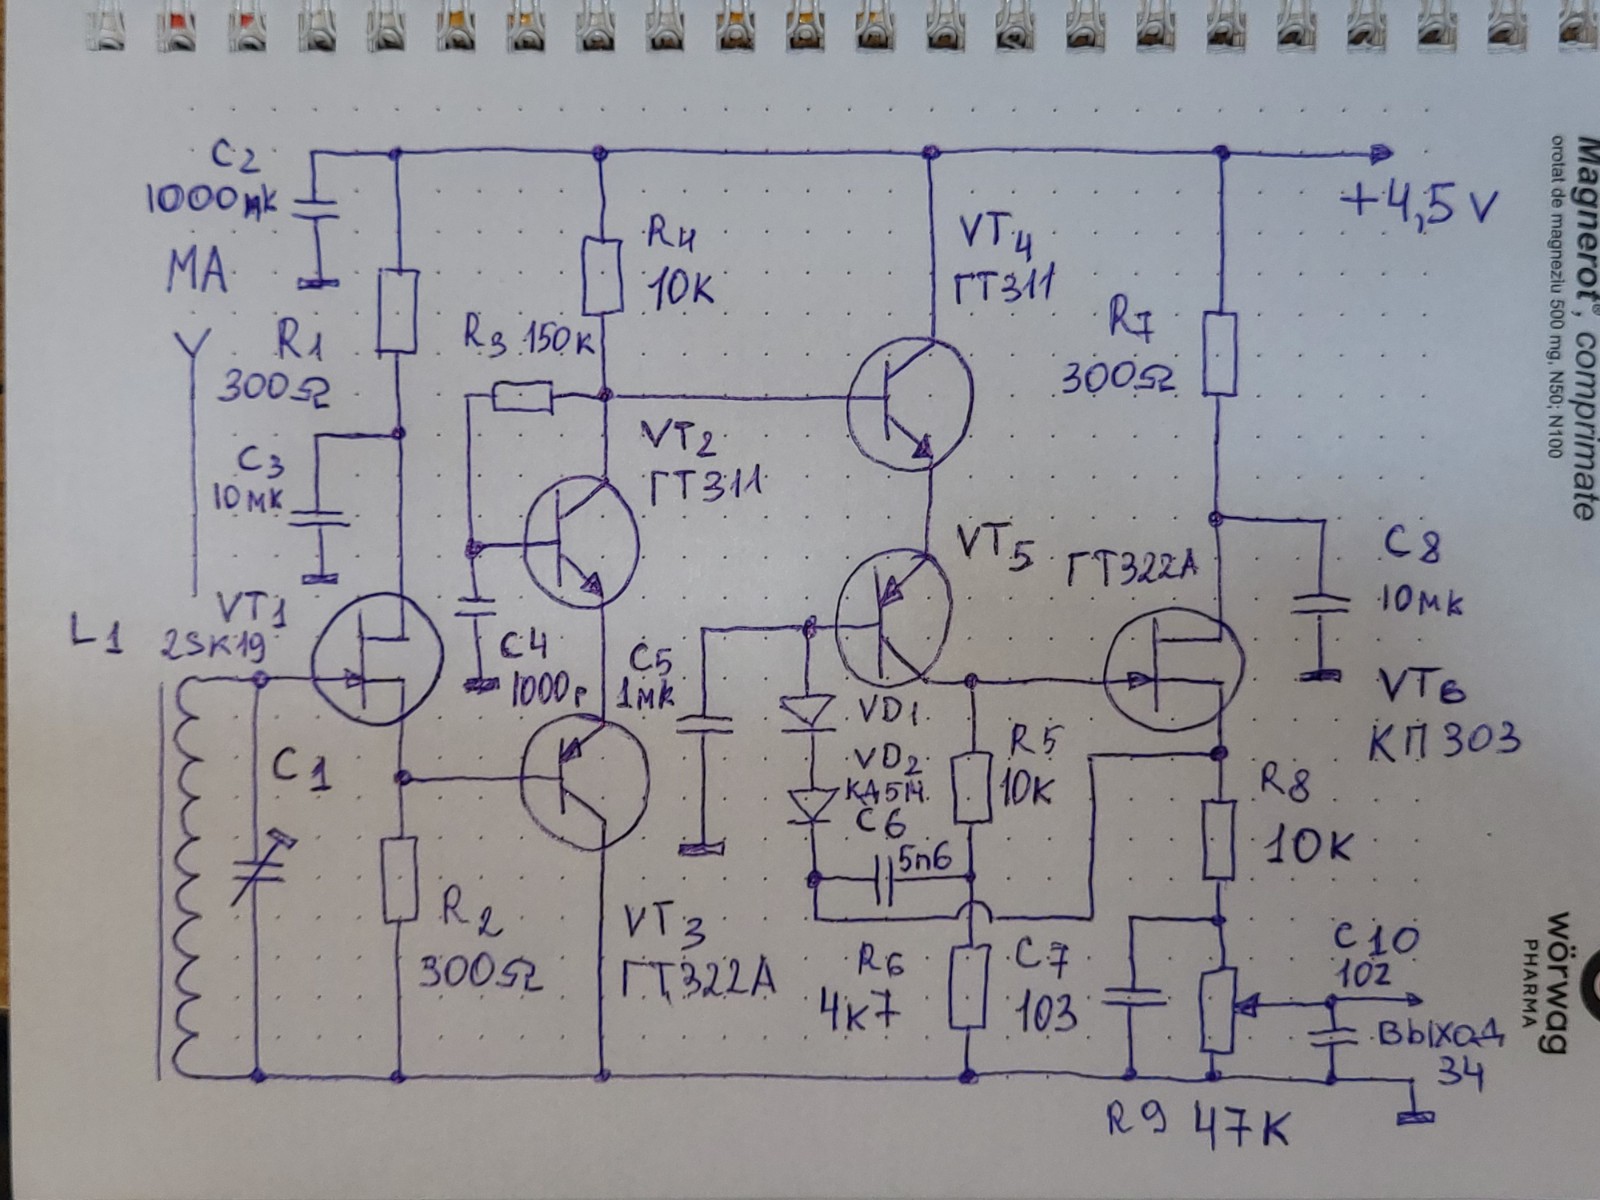 C2
1000мк
МА
R1
300Ω
C3
10мк
VT1
2SK19
L1
C1
R2
300Ω
R3 150к
R4
10К
VT2
ГТ311
C4
1000р
C5
1мк
VT3
ГТ322А
VT4
ГТ311
VT5
ГТ322А
VD1
VD2
C6
5п6
R5
10К
R6
4к7
C7
103
R7
300Ω
+4,5 V
C8
10мк
VT6
КП303
R8
10К
C10
102
ВЫХОД
ЗЧ
R9 47К
Magnerot®, comprimate
orotat de magneziu 500 mg, N50; N100
wörwag
PHARMA